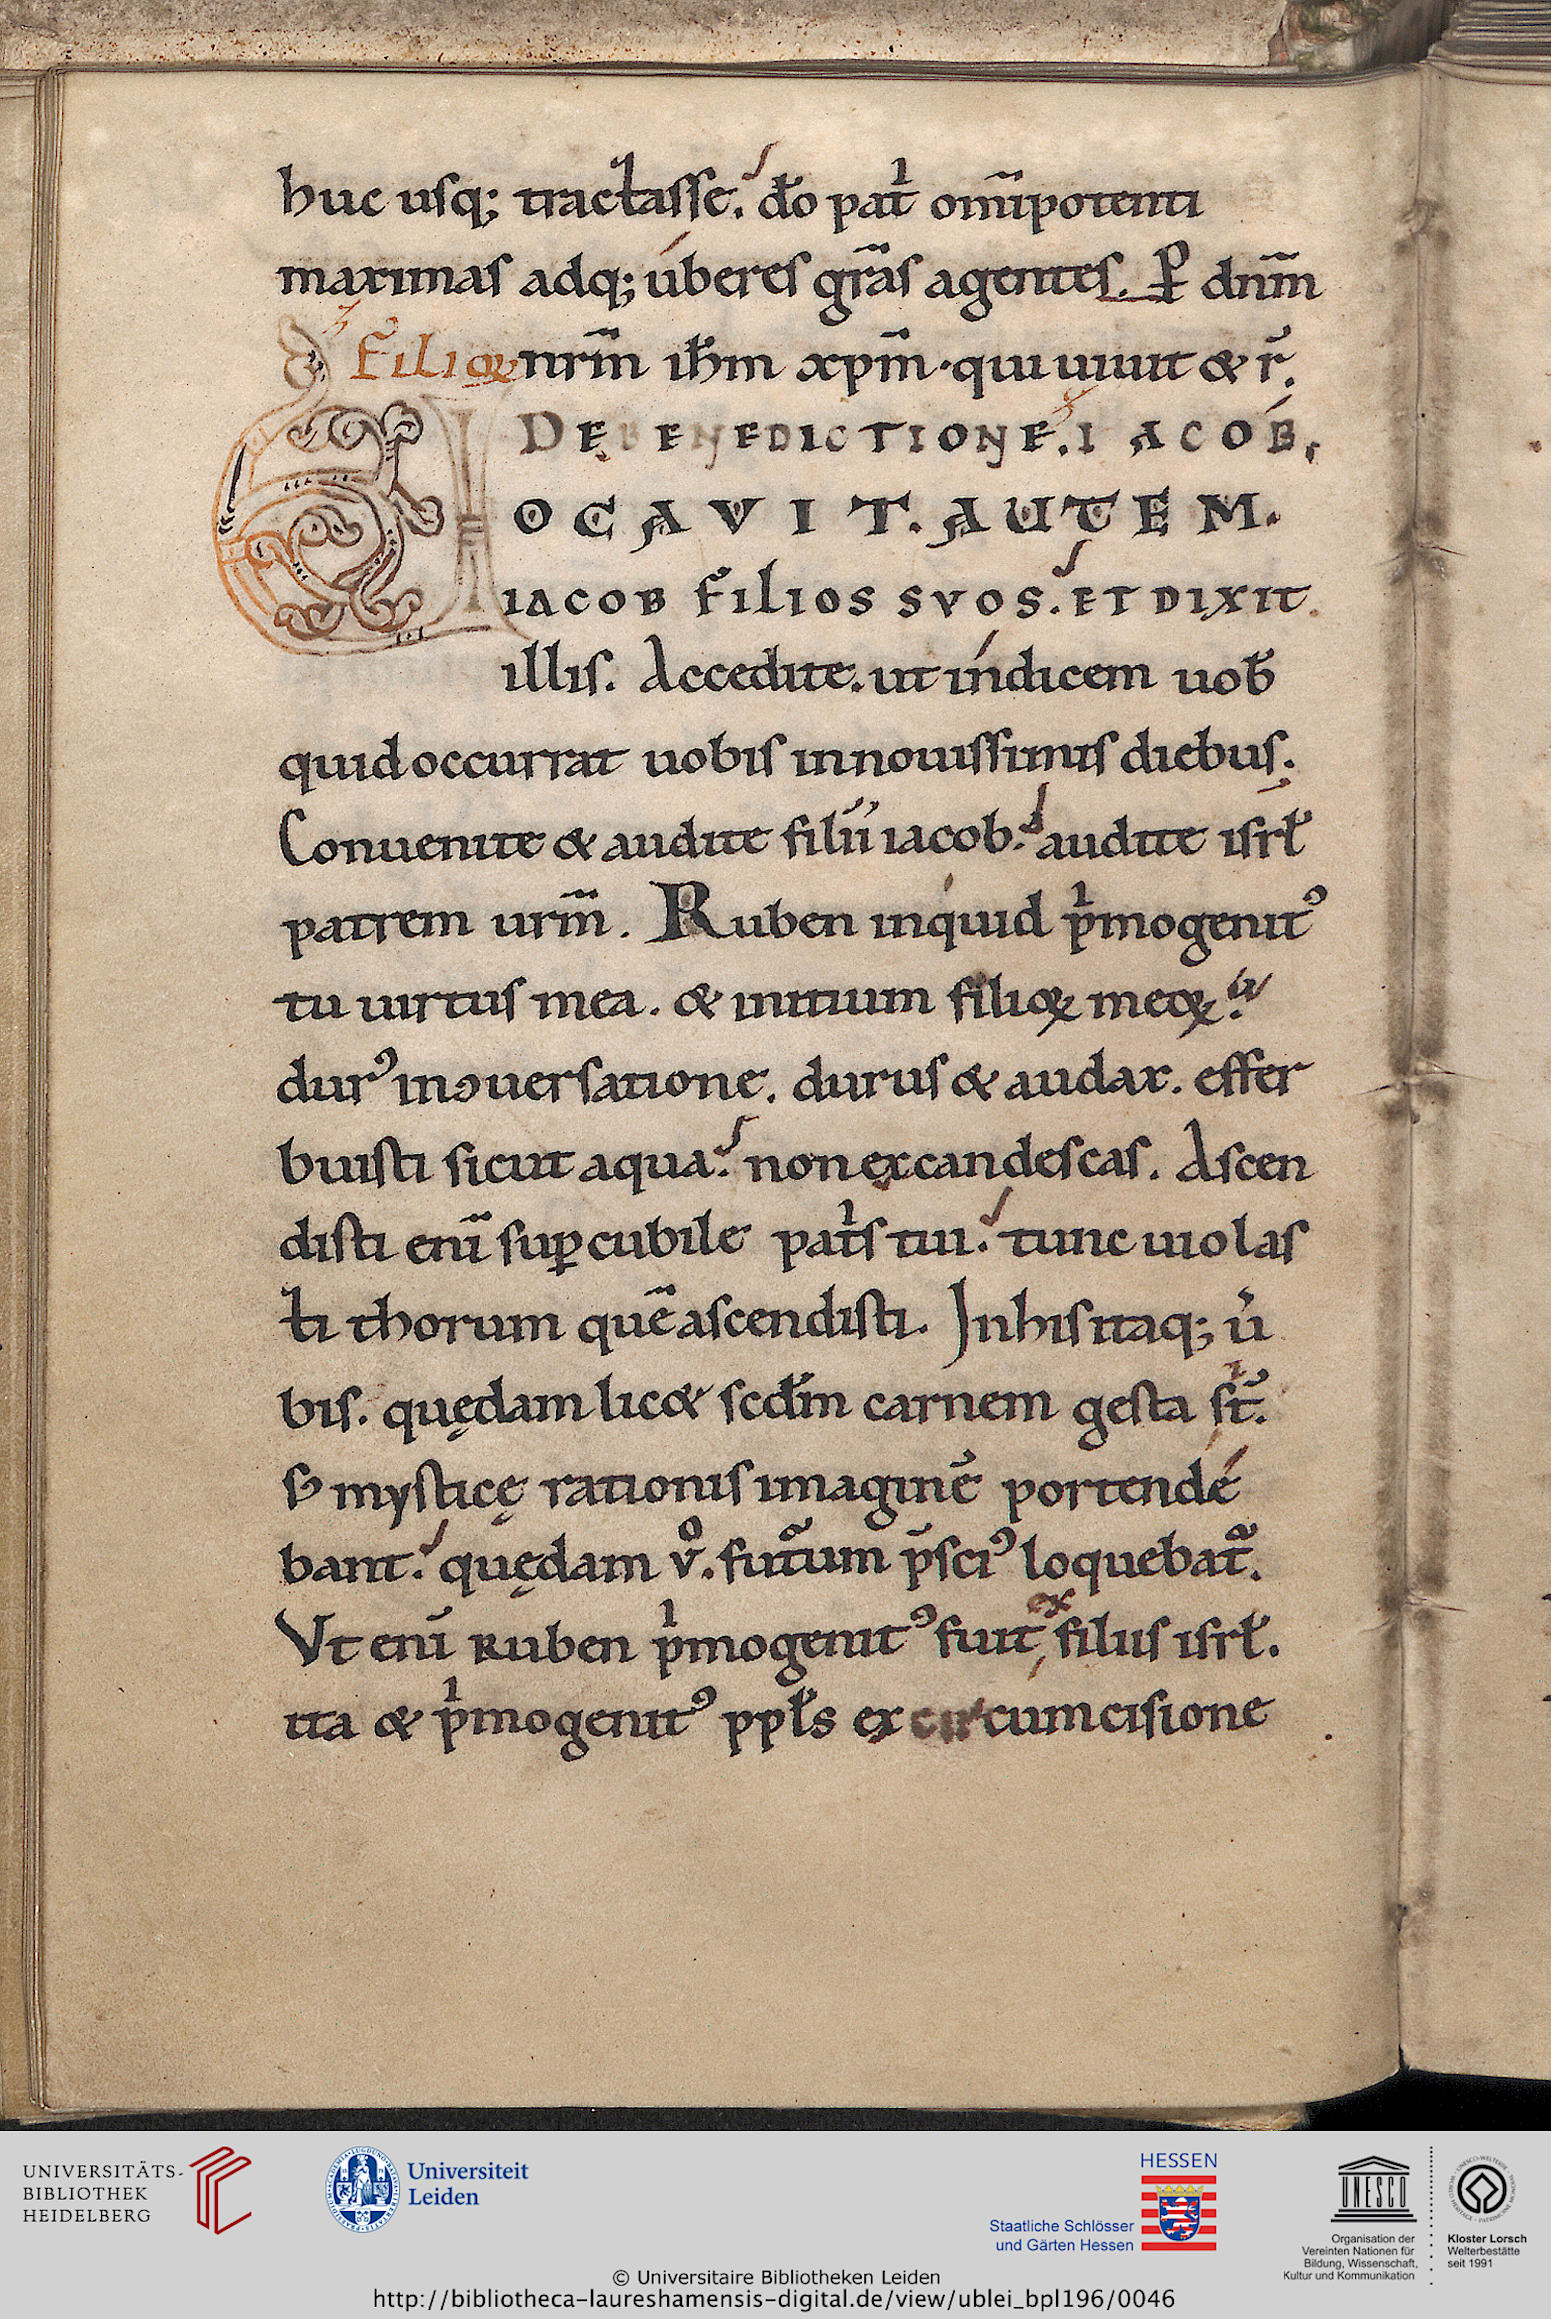 huc usq; tractasse. do̅ patͥ omı̅potenti
maximas adq; úberes gr̅as agentes. P̲ dn̅m
Filioꝝ nr̅m ih̅m xp̅m · qui uiuit & r̅.
DE BENEDICTIONE. IACOB.
VOCAVIT. AUTEM.
IACOB FILIOS SVOS. ET DIXIT.
illis. Accedite. ut índicem uob̅
quid occurrat uobis in nouissimis diebus.
Conuenite & audite filii iacob. audite isrl̅
patrem ur̅m. Ruben inquid pͥmogenitꝰ
tu uirtus mea. & initium filioꝝ meoꝝ.
durꝰ in ꝯuersatione. durus & audax. effer
buisti sicut aqua. non excandescas. Ascen
disti eni̅ suꝑ cubile patͥs tui. tunc uiolas
ti thorum que̅ ascendisti. In his itaq; u̅
bis. quędam lic& scd̅m carnem gesta st̅.
s; mysticę rationis imagine̅ portendé
bant. quędam vͦ. futᷓum p̅sciꝰ loquebatᷓ.
Vt eni̅ Ruben pͥmogenitꝰ fuit ex filus isrl̅.
ita & pͥmogenitꝰ ppl̅s ex circumcisione
UNIVERSITÄTS-
BIBLIOTHEK
HEIDELBERG
Universiteit
Leiden
HESSEN
Staatliche Schlösser
und Gärten Hessen
UNESCO
Organisation der
Vereinten Nationen für
Bildung, Wissenschaft,
Kultur und Kommunikation
Kloster Lorsch
Welterbestätte
seit 1991
© Universitaire Bibliotheken Leiden
http://bibliotheca-laureshamensis-digital.de/view/ublei_bpl196/0046